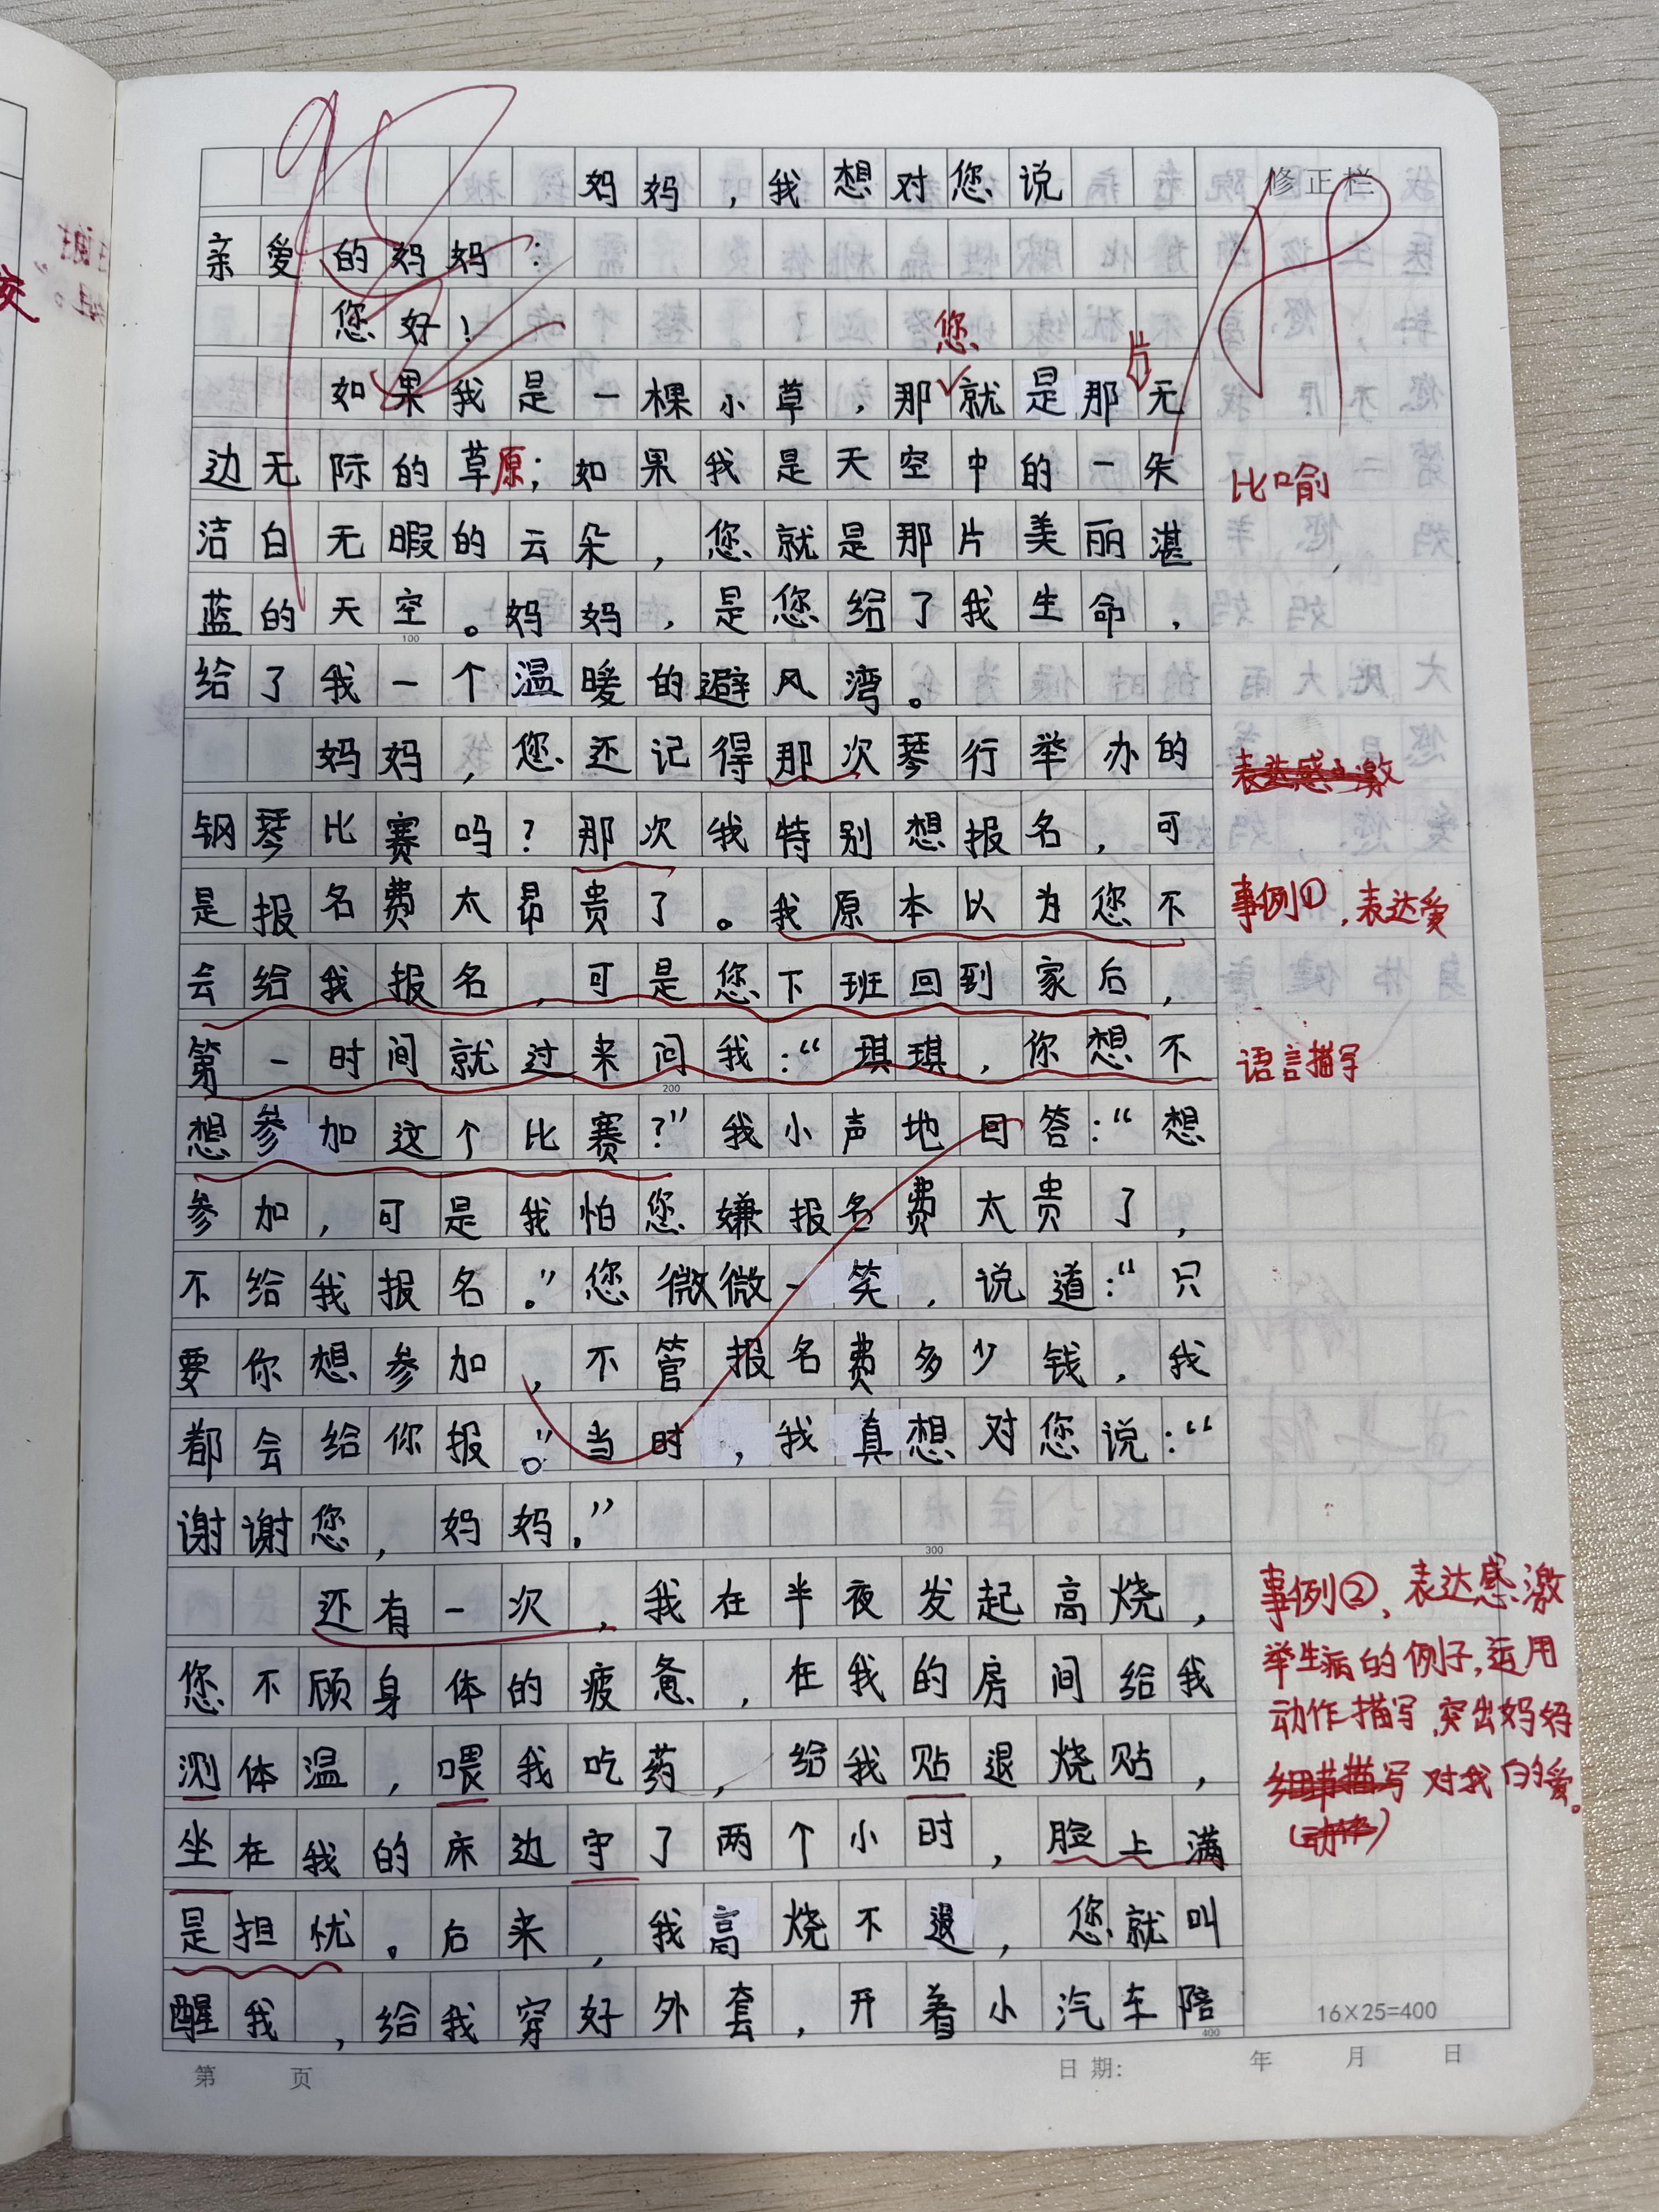 98
妈妈，我想对您说
修正栏
亲爱的妈妈：
您好！
您
片
如果我是一棵小草，那就是那无
边无际的草原；如果我是天空中的一朵
比喻
洁白无暇的云朵，您就是那片美丽湛
蓝的天空。妈妈，是您给了我生命，
100
给了我一个温暖的避风湾。
妈妈，您还记得那次琴行举办的
表达感激
钢琴比赛吗？那次我特别想报名，可
是报名费太昂贵了。我原本以为您不
事例①，表达爱
会给我报名，可是您下班回到家后，
第一时间就过来问我：“琪琪，你想不
语言描写
200
想参加这个比赛？”我小声地回答：“想
参加，可是我怕您嫌报名费太贵了，
不给我报名。”您微微一笑，说道：“只
要你想参加，不管报名费多少钱，我
都会给你报。”当时，我真想对您说：“
谢谢您，妈妈.”
300
还有一次，我在半夜发起高烧，
事例②，表达感激
您不顾身体的疲惫，在我的房间给我
举生病的例子，运用
动作描写，突出妈妈
测体温，喂我吃药，给我贴退烧贴，
细节描写 对我的爱。
坐在我的床边守了两个小时，脸上满
（动作）
是担忧。后来，我高烧不退，您就叫
醒我，给我穿好外套，开着小汽车陪
16×25=400
400
第 页
日期： 年 月 日